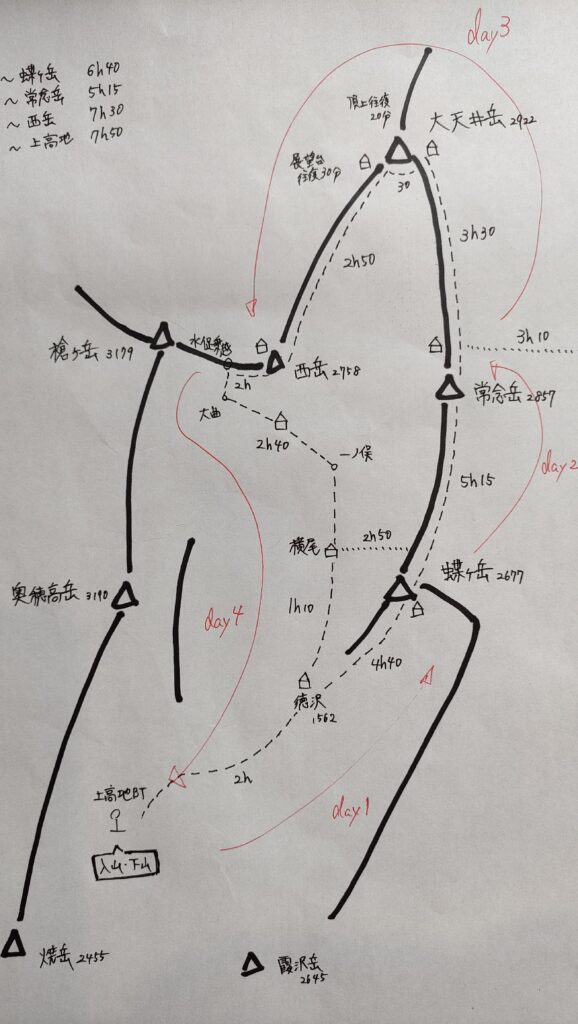 ~ 蝶ヶ岳 6h40
~ 常念岳 5h15
~ 西岳 7h30
~ 上高地 7h50
day3
頂上往復
20分
大天井岳 2922
展望台
往復30分
30
3h30
2h50
水俣乗越
槍ヶ岳 3179
西岳 2758
3h10
2h
常念岳 2857
大曲
2h40
一ノ俣
5h15
day2
横尾
2h50
蝶ヶ岳 2677
奥穂高岳 3190
1h10
day4
4h40
徳沢
1562
2h
上高地BT
day1
入山・下山
焼岳 2455
霞沢岳
2645